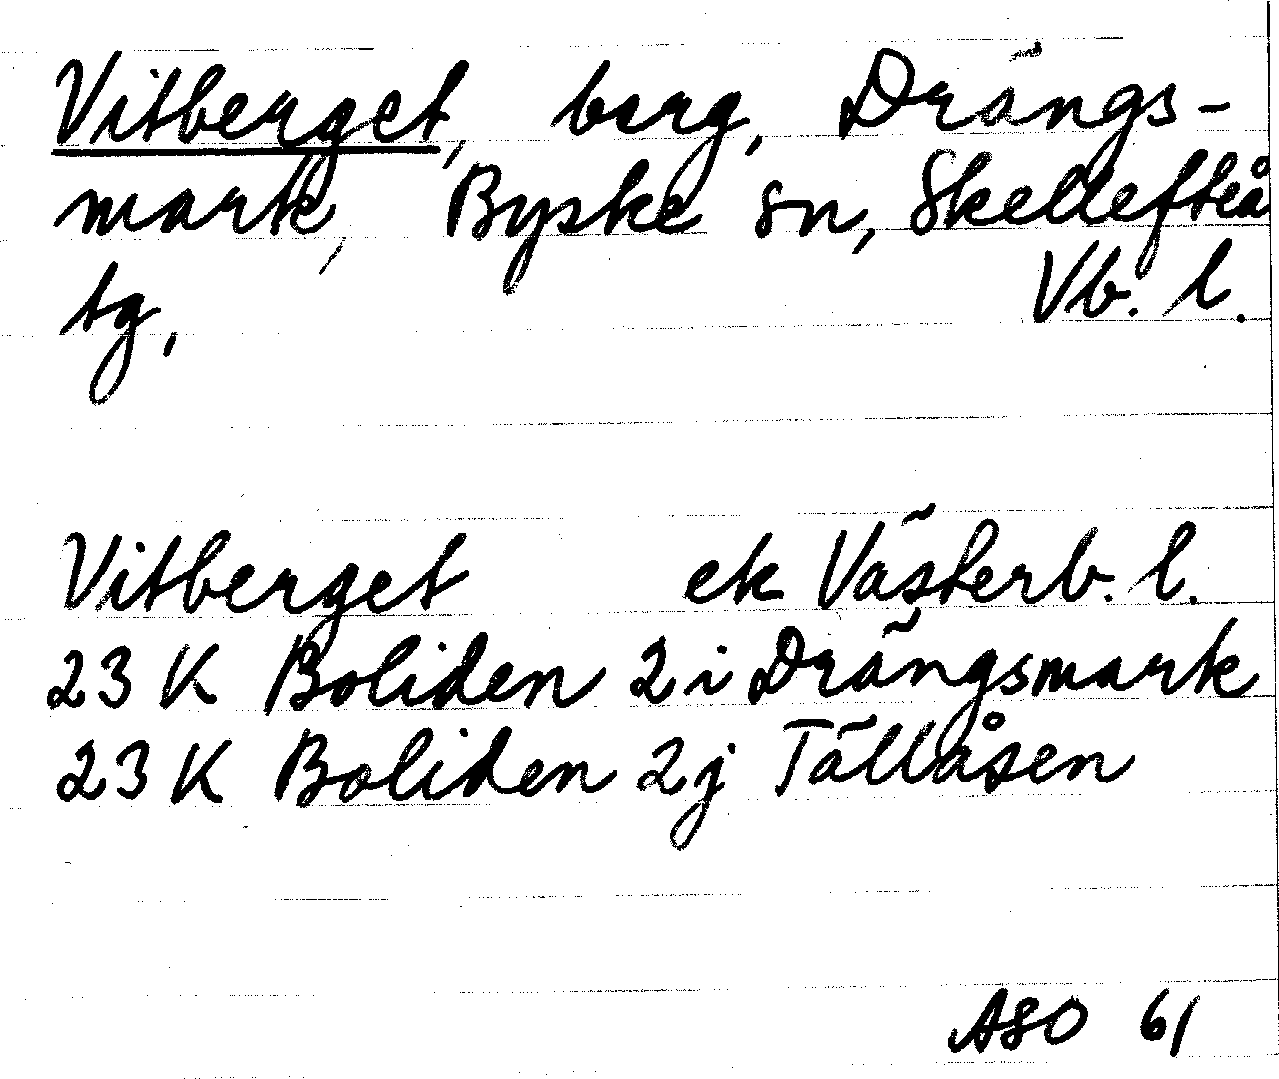 Vitberget, berg, Drängs-
mark, Byske sn, Skellefteå
tg, Vb. l.
Vitberget ek Västerb. l.
23 K Boliden 2i Drängsmark
23 K Boliden 2j Tällåsen
ASO 61